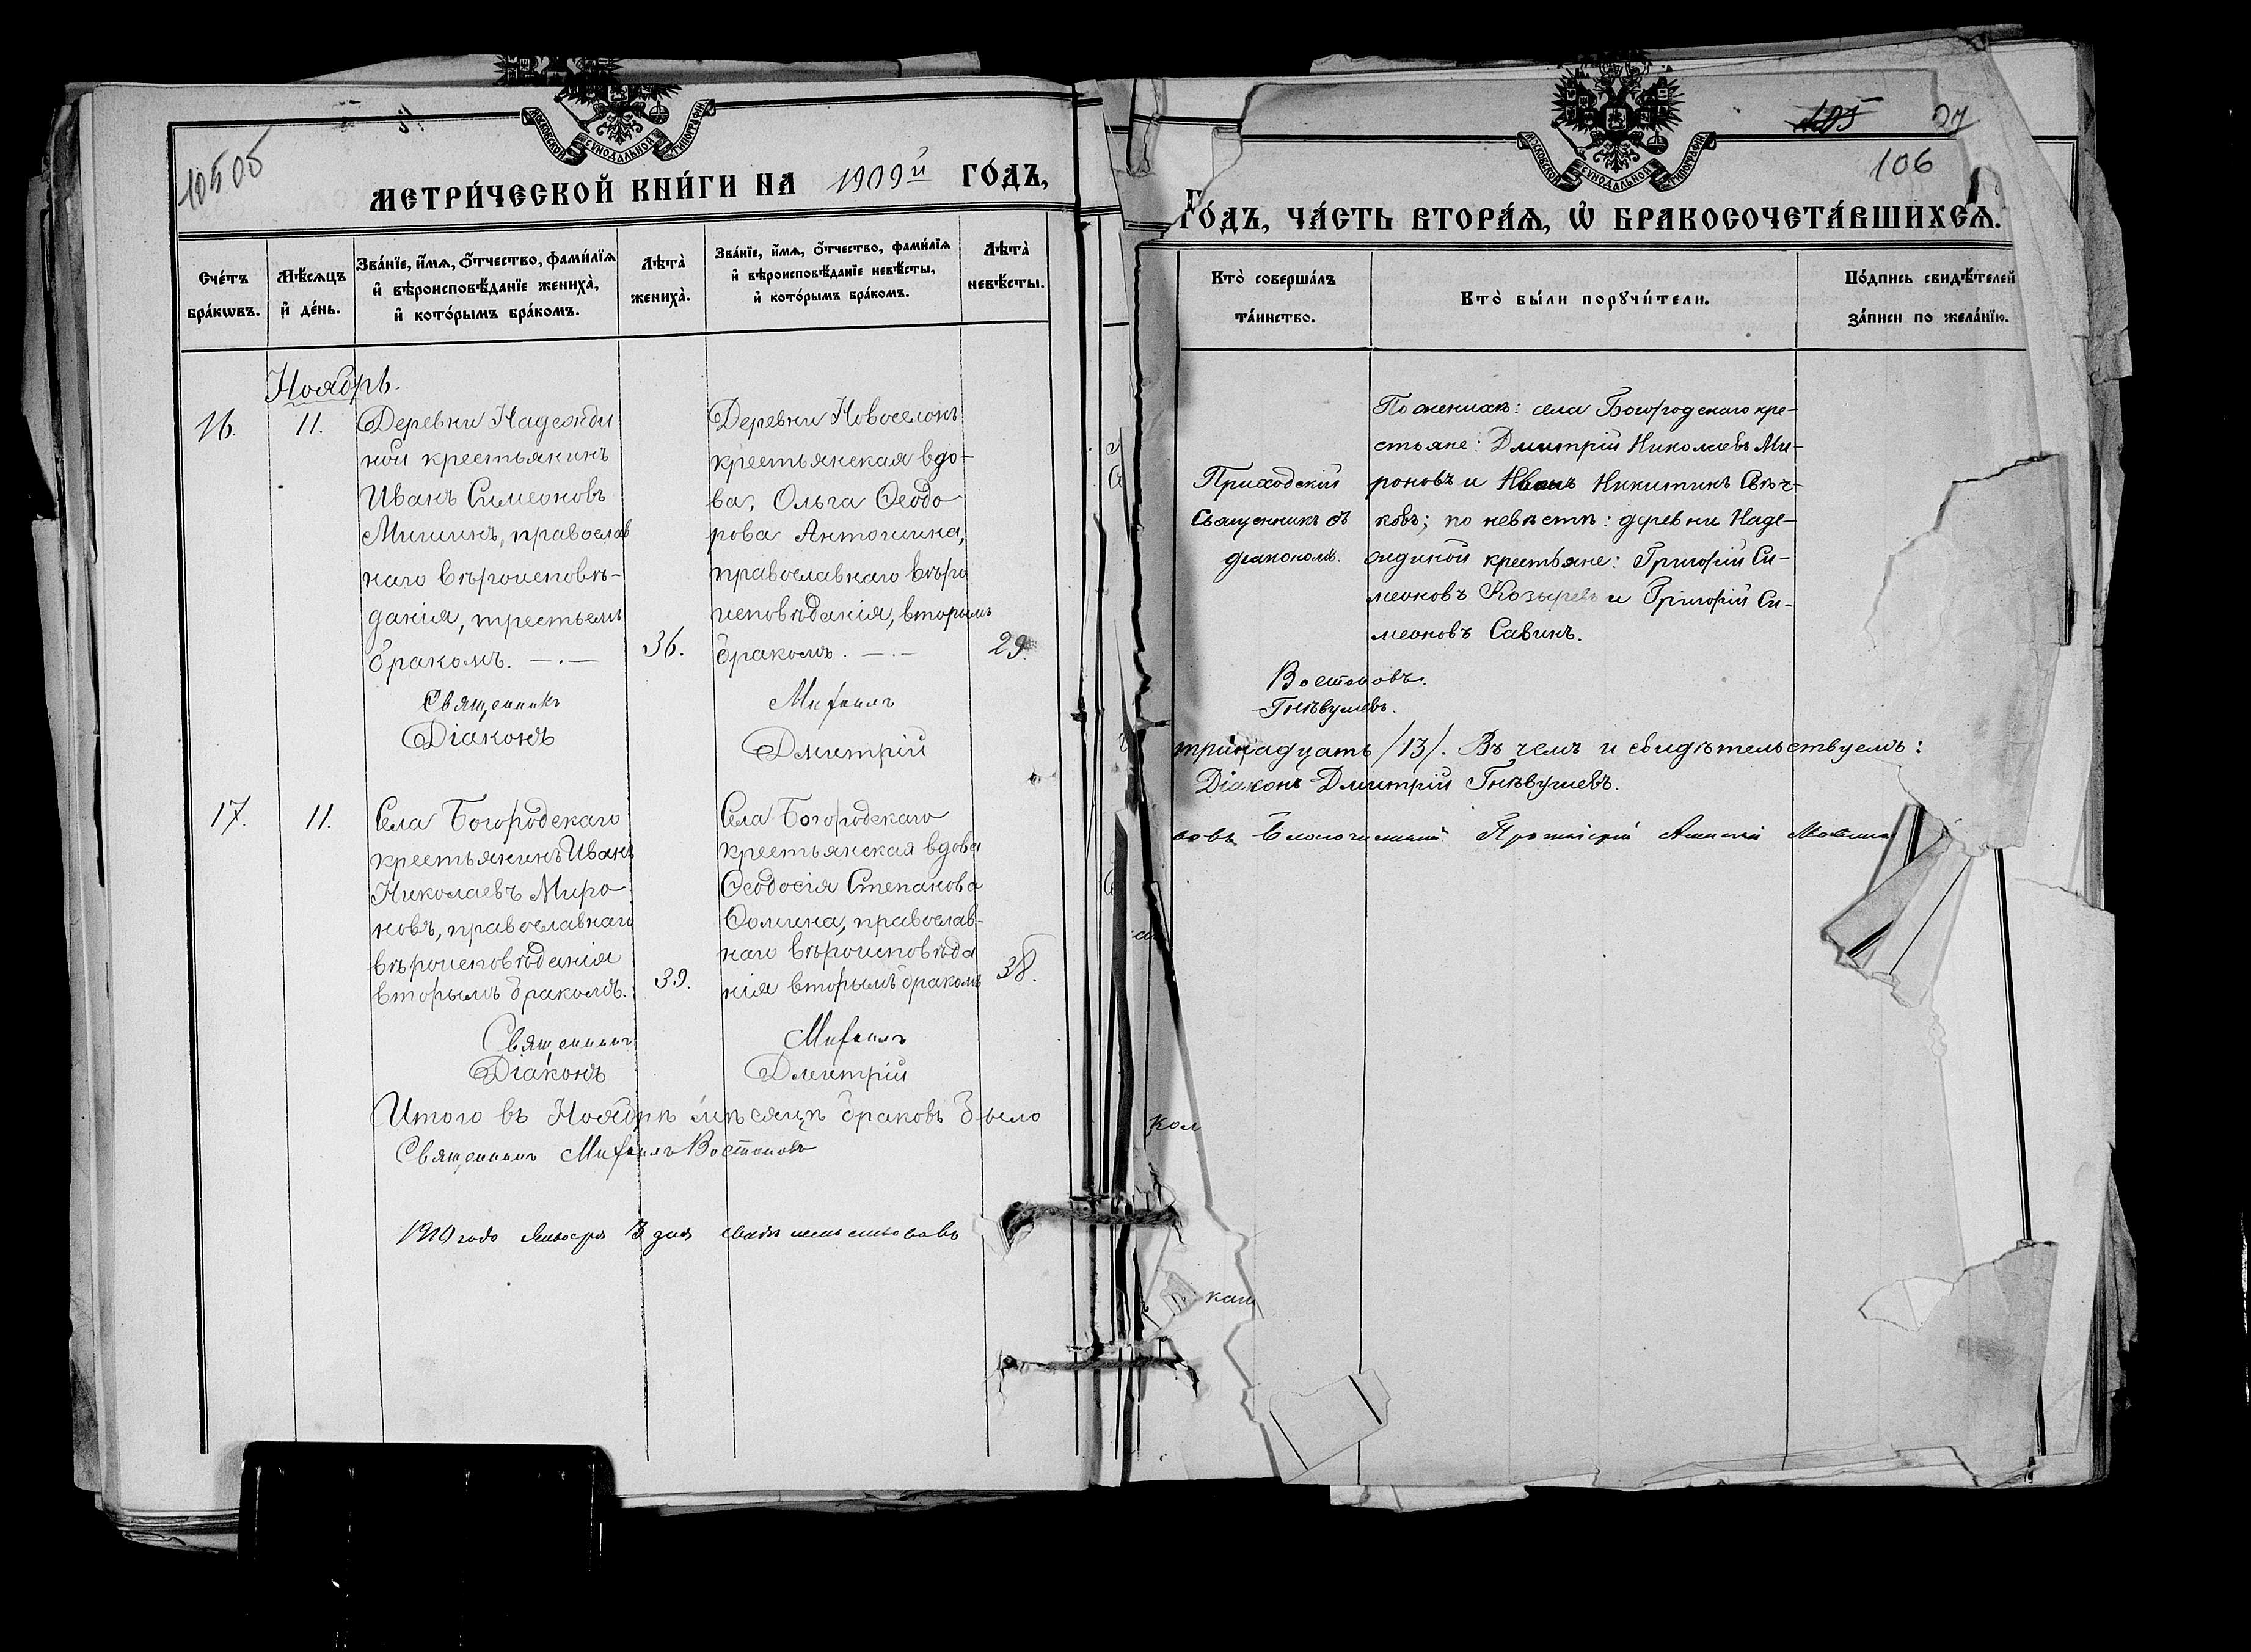 МОСКОВСКОЙ СѴНОДАЛЬНОЙ ТИПОГРАФИИ
10505
МЕТРИ́ЧЕСКОЙ КНИ́ГИ НА 1909й ГО́ДЪ,
Сче́тъ бра́кѡвъ.
Мѣ́сяцъ и҆ де́нь.
Зва́нїе, и҆́мѧ, ѻ҆́тчество, фами́лїѧ и҆ вѣроисповѣ́данїе жениха̀, и҆ кото́рымъ бра́комъ.
Лѣта̀ жениха̀.
Зва́нїе, и҆́мѧ, ѻ҆́тчество, фами́лїѧ и҆ вѣроисповѣ́данїе невѣ́сты, и҆ кото́рымъ бра́комъ.
Лѣта̀ невѣ́сты.
Ноябрь.
16.
11.
Деревни Надежди
ной крестьянинъ
Иванъ Симеоновъ
Мишинъ, православ
наго вѣроисповѣ-
данія, третьемъ
бракомъ. —.—
36.
Деревни Новоселокъ
крестьянская вдо-
ва, Ольга Ѳеодо
рова Антошина,
православнаго вѣро
исповѣданія, вторымъ
бракомъ. —.—
29.
Священникъ Михаилъ
Діаконъ Дмитрій
17.
11.
Села Богородскаго
крестьянинъ Иванъ
Николаевъ Миро
новъ, православнаго
вѣроисповѣданія
вторымъ бракомъ.
39.
Села Богородскаго
крестьянская вдова
Ѳеодосія Степанова
Ѳомина, православ-
наго вѣроисповѣда
нія вторымъ бракомъ
38.
Священникъ Михаилъ
Діаконъ Дмитрій
Итого въ Ноябрѣ мѣсяцѣ браковъ было
Священникъ Михаилъ Востоковъ
1910 года Января 3 дня свидѣтельствовалъ
МОСКОВСКОЙ СѴНОДАЛЬНОЙ ТИПОГРАФИИ
105
106
ГО́ДЪ, ЧА́СТЬ ВТОРА́Ѧ, Ѡ҆ БРАКОСОЧЕТА́ВШИХСѦ.
Кто̀ соверша́лъ та́инство.
Кто̀ бы́ли порꙋчи́тели.
По́дпись свидѣ́телей за́писи по жела́нїю.
Приходскій
Священникъ съ
діакономъ.
По женихѣ: села Богородскаго кре-
стьяне: Дмитрій Николаевъ Ми-
роновъ и Иванъ Никитинъ Свѣч-
ковъ; по невѣстѣ: деревни Наде-
ждиной крестьяне: Григорій Си-
меоновъ Козыревъ и Григорій Си-
меоновъ Савинъ.
Востоковъ.
Гнѣвушевъ.
тринадцать /13/. Въ чемъ и свидѣтельствуемъ:
Діаконъ Дмитрій Гнѣвушевъ.
Благочинный Протоіерей Алексій
кол
каго